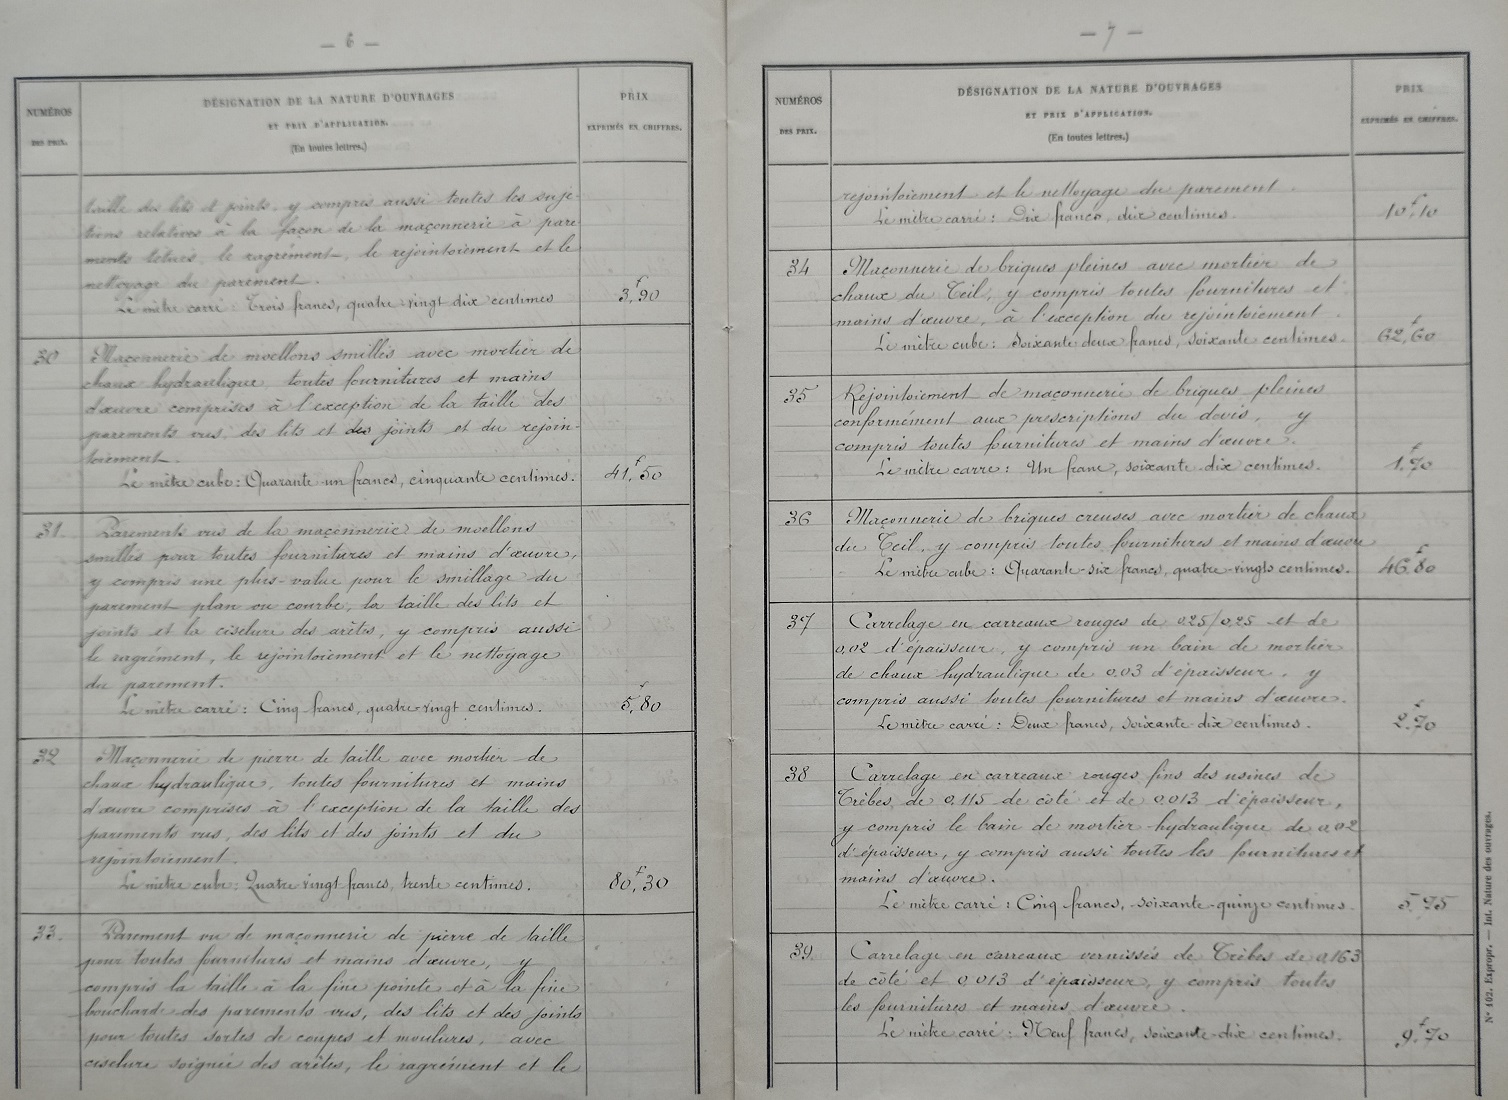 — 6 —
NUMÉROS
DES PRIX.
DÉSIGNATION DE LA NATURE D'OUVRAGES
ET PRIX D'APPLICATION.
(En toutes lettres.)
PRIX
EXPRIMÉS EN CHIFFRES.
taille des lits et joints, y compris aussi toutes les suje-
tions relatives à la façon de la maçonnerie à pare
ments têtués, le ragrément, le rejointoiement et le
nettoyage du parement.
Le mètre carré : Trois francs, quatre-vingt dix centimes
3f,90
30
Maçonnerie de moellons smillés avec mortier de
chaux hydraulique, toutes fournitures et mains
d'œuvre comprises à l'exception de la taille des
parements vus, des lits et des joints et du rejoin-
toiement.
Le mètre cube : Quarante un francs, cinquante centimes.
41f,50
31.
Parements vus de la maçonnerie de moellons
smillés pour toutes fournitures et mains d'œuvre,
y compris une plus-value pour le smillage du
parement plan ou courbe, la taille des lits et
joints et la ciselure des arêtes, y compris aussi
le ragrément, le rejointoiement et le nettoyage
du parement.
Le mètre carré : Cinq francs, quatre-vingt centimes.
5f,80
32
Maçonnerie de pierre de taille avec mortier de
chaux hydraulique, toutes fournitures et mains
d'œuvre comprises à l'exception de la taille des
parements vus, des lits et des joints et du
rejointoiement.
Le mètre cube : Quatre vingt francs, trente centimes.
80f,30
33.
Parement vu de maçonnerie de pierre de taille
pour toutes fournitures et mains d'œuvre, y
compris la taille à la fine pointe et à la fine
boucharde des parements vus, des lits et des joints
pour toutes sortes de coupes et moulures, avec
ciselure soignée des arêtes, le ragrément et le
— 7 —
NUMÉROS
DES PRIX.
DÉSIGNATION DE LA NATURE D'OUVRAGES
ET PRIX D'APPLICATION.
(En toutes lettres.)
PRIX
EXPRIMÉS EN CHIFFRES.
rejointoiement et le nettoyage du parement.
Le mètre carré : Dix francs, dix centimes.
10f,10
34
Maçonnerie de briques pleines avec mortier de
chaux du Teil, y compris toutes fournitures et
mains d'œuvre, à l'exception du rejointoiement.
Le mètre cube : Soixante deux francs, soixante centimes.
62f,60
35
Rejointoiement de maçonnerie de briques pleines
conformément aux prescriptions du devis, y
compris toutes fournitures et mains d'œuvre.
Le mètre carré : Un franc, soixante-dix centimes.
1f,70
36
Maçonnerie de briques creuses avec mortier de chaux
du Teil, y compris toutes fournitures et mains d'œuvre
Le mètre cube : Quarante-six francs, quatre-vingts centimes.
46f,80
37
Carrelage en carreaux rouges de 0,25/0,25 et de
0,02 d'épaisseur, y compris un bain de mortier
de chaux hydraulique de 0,03 d'épaisseur, y
compris aussi toutes fournitures et mains d'œuvre.
Le mètre carré : Deux francs, soixante-dix centimes.
2f,70
38
Carrelage en carreaux rouges fins des usines de
Trèbes, de 0,115 de côté et de 0,013 d'épaisseur,
y compris le bain de mortier hydraulique de 0,02
d'épaisseur, y compris aussi toutes les fournitures et
mains d'œuvre.
Le mètre carré : Cinq francs, soixante-quinze centimes.
5f,75
39.
Carrelage en carreaux vernissés de Trèbes de 0,163
de côté et 0,013 d'épaisseur, y compris toutes
les fournitures et mains d'œuvre.
Le mètre carré : Neuf francs, soixante-dix centimes.
9f,70
N° 102. Expropr. — Int. Nature des ouvrages.